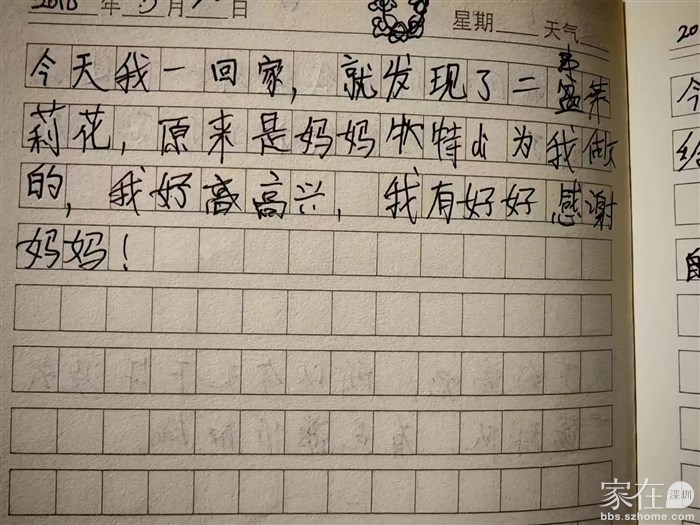 年 月 日 星期 天气
今天我一回家，就发现了二盆茉
莉花，原来是妈妈特di为我做
的，我好高高兴，我有好好感谢
妈妈！
20
今
家在深圳
bbs.szhome.com